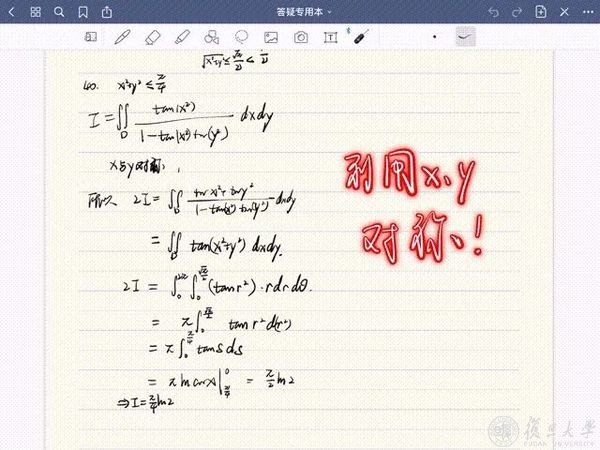 答疑专用本
√x²+y² ≤ √π/2 <
40. x²+y² ≤ π/4
I = ∬_D tan(x²) / (1 - tan(x²) tan(y²)) dxdy
x与y对称,
所以 2I = ∬_D (tan x² + tan y²) / (1 - tan(x²) tan(y²)) dxdy
= ∬_D tan(x²+y²) dxdy.
利用x、y
对称、!
2I = ∫_0^{2π} ∫_0^{√π/2} (tan r²)·r dr dθ.
= π ∫_0^{√π/2} tan r² d(r²)
= π ∫_0^{π/4} tan s ds
= π ln cos x |_{π/4}^0 = π/2 ln2
⇒ I = π/4 ln2
復旦大學
FUDAN UNIVERSITY